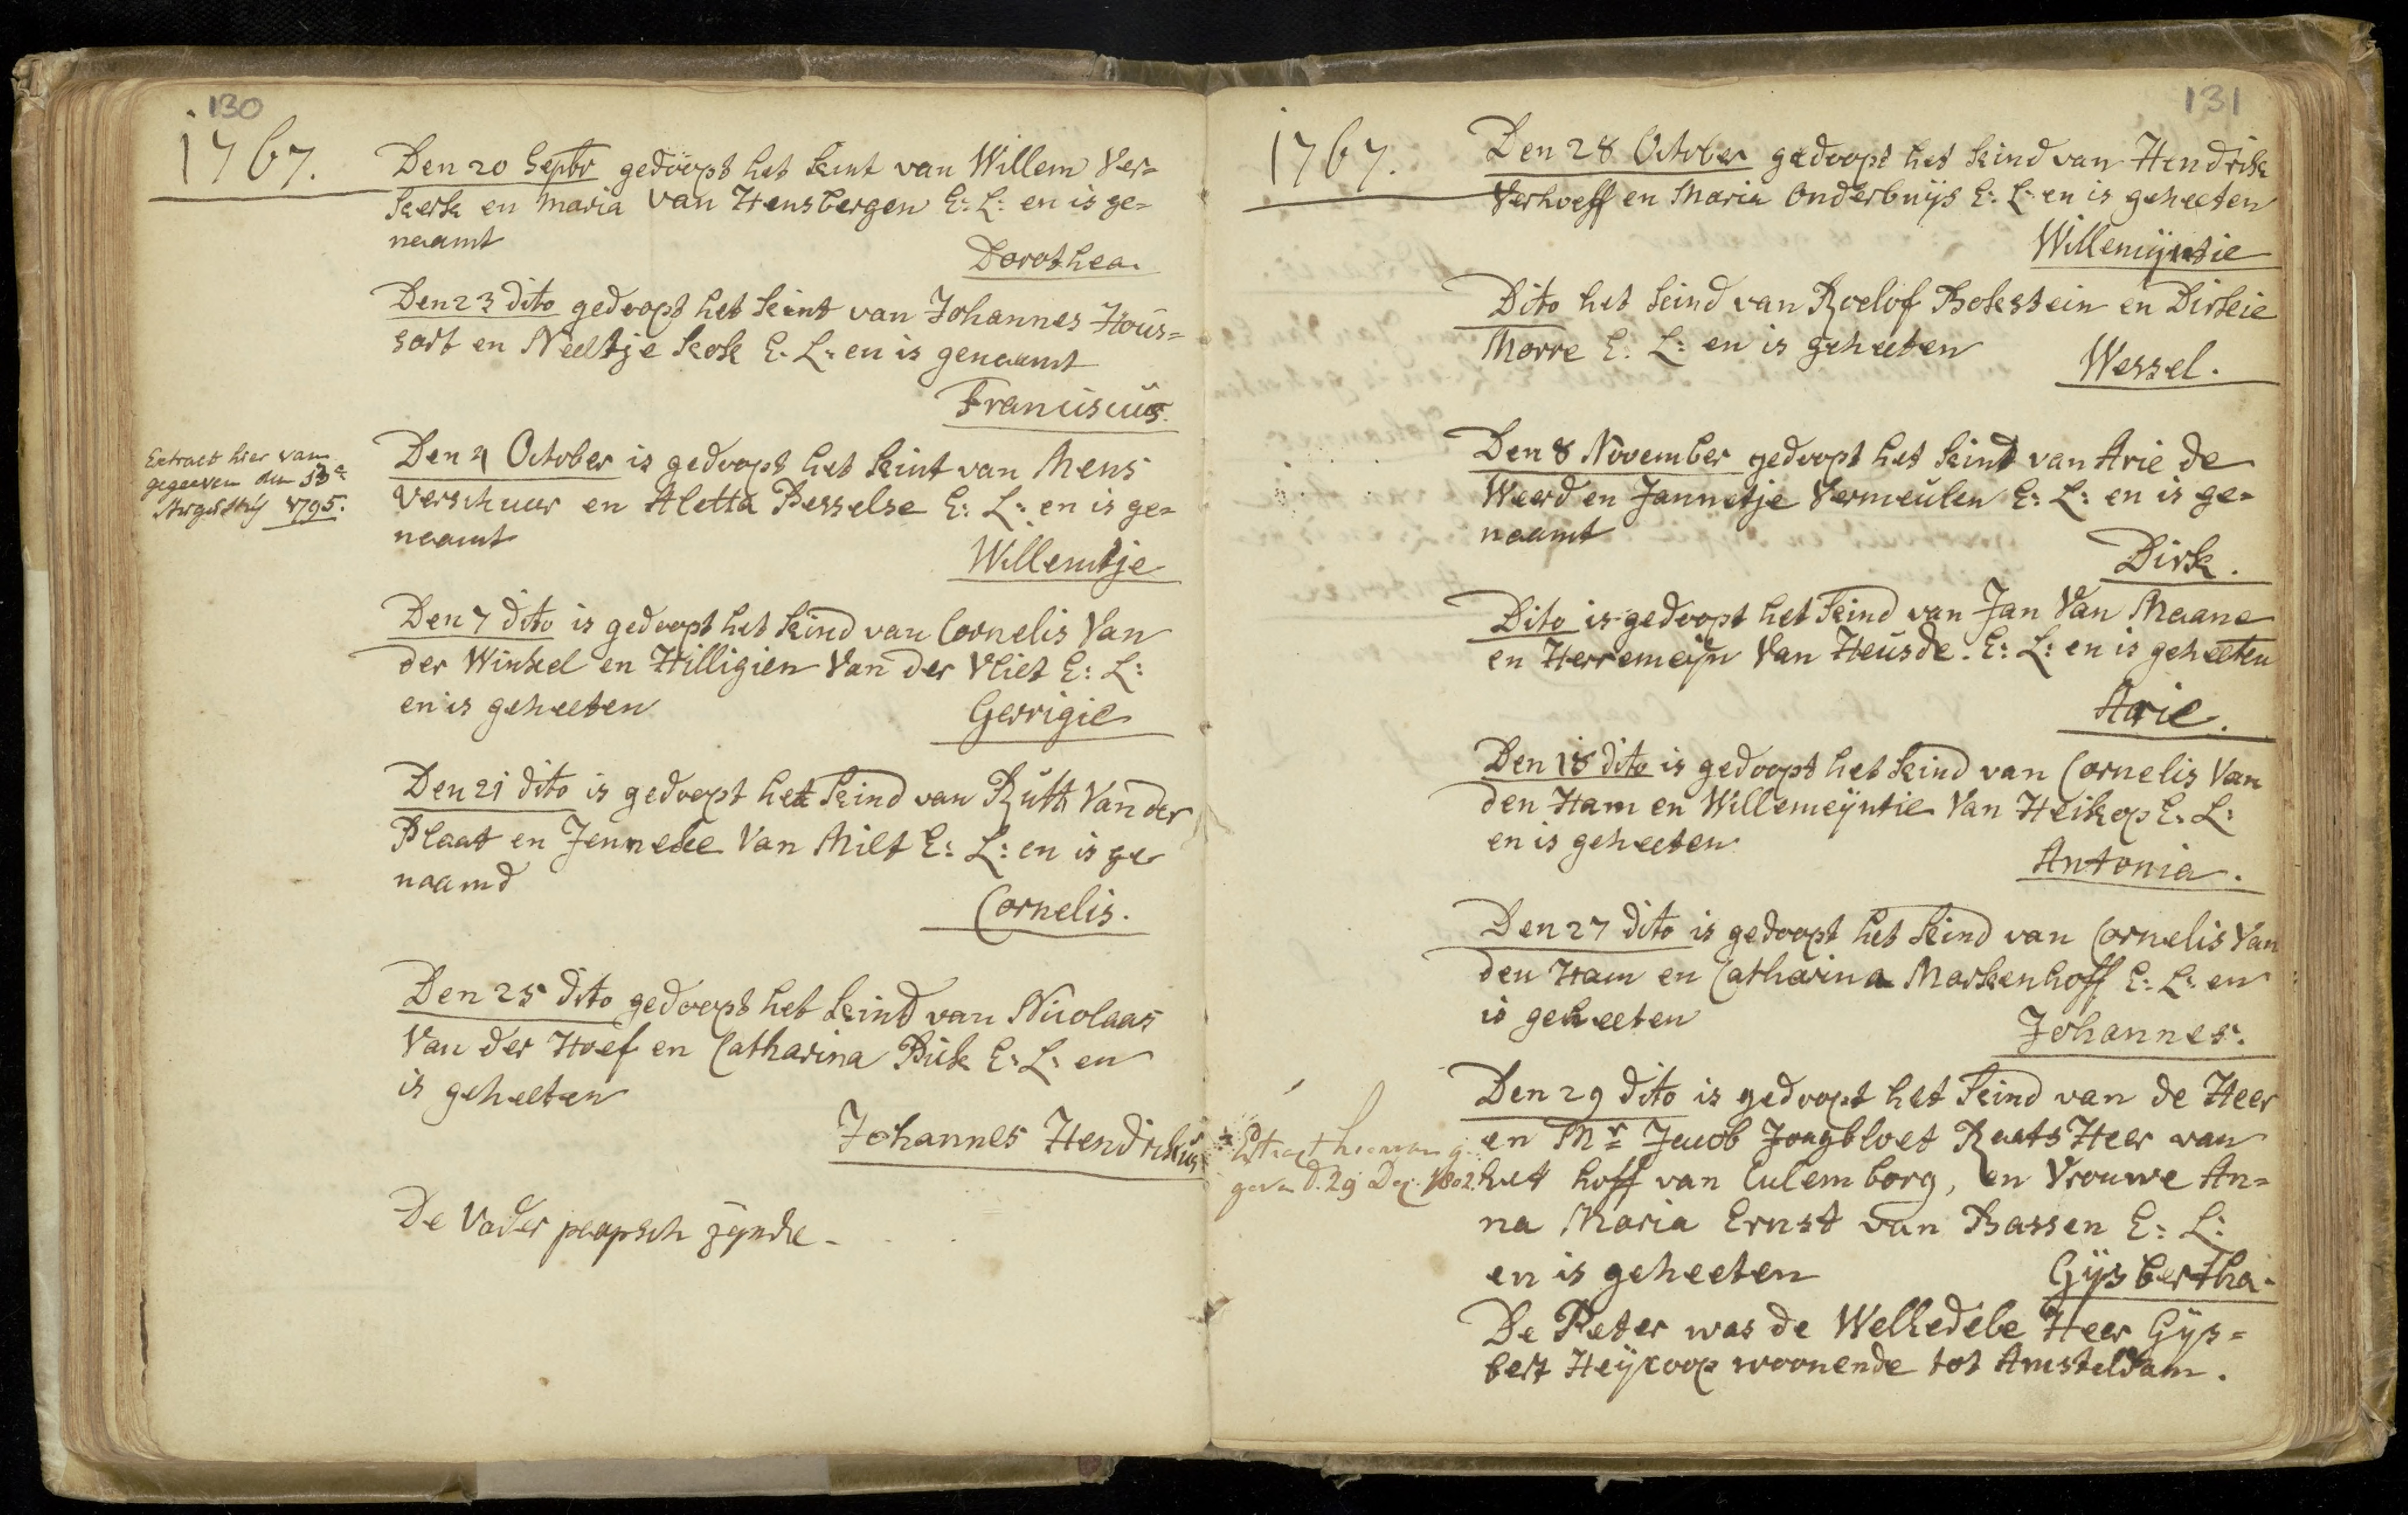 130
1767.
Den 20 Septbr gedoopt het kint van Willem Ver=
kerk en Maria van Hensbergen E: L: en is ge=
naamt
Dorothea.
Den 23 dito gedoopt het kint van Johannes Hous=
sart en Neeltje Kok E: L: en is genaamt
Franciscus.
Extract hier van
gegeeven den 13e
1795.
Den 4 October is gedoopt het kint van Mens
Verschuur en Aletta Besselse E: L: en is ge=
naamt
Willemtje
Den 7 dito is gedoopt het kind van Cornelis Van
der Winkel en Hilligien Van der Vliet E: L:
en is geheeten
Gerrigie
Den 21 dito is gedoopt het kind van Rutt Van der
Plaat en Jenneke Van Milt E: L: en is ge
naamd
Cornelis.
Den 25 dito gedoopt het kind van Nicolaas
Van der Hoef en Catharina Buk E: L: en
is geheeten
Johannes Hendrikus
De Vader paapsch zynde -
131
1767.
Den 28 October gedoopt het kind van Hendrik
Verhoeff en Maria Onderbuijs E: L: en is geheeten
Willemijntie
Dito het kind van Roelof Bokstein en Dirkie
Morre E: L: en is geheeten
Wessel.
Den 8 November gedoopt het kind van Arie de
Weerd en Jannetje Vermeulen E: L: en is ge=
naamt
Dirk.
Dito is gedoopt het kind van Jan Van Maane
en Herremeijn Van Heusde. E: L: en is geheeten
Arie.
Den 18 dito is gedoopt het kind van Cornelis Van
den Ham en Willemeijntie Van Heikop E: L:
en is geheeten
Antonia.
Den 27 dito is gedoopt het kind van Cornelis Van
den Ham en Catharina Markenhoff E: L: en
is geheeten
Johannes.
Extract hiervan ge
geven d. 29 Dec. 1802.
Den 29 dito is gedoopt het kind van de Heer
en Mr Jacob Jongbloet Raats Heer van
het hoff van Culemborg, en Vrouwe An=
na Maria Ernst van Bassen E: L:
en is geheeten
Gijsbertha.
De Peter was de Welledele Heer Gijs=
bert Heijcoop woonende tot Amsteldam.